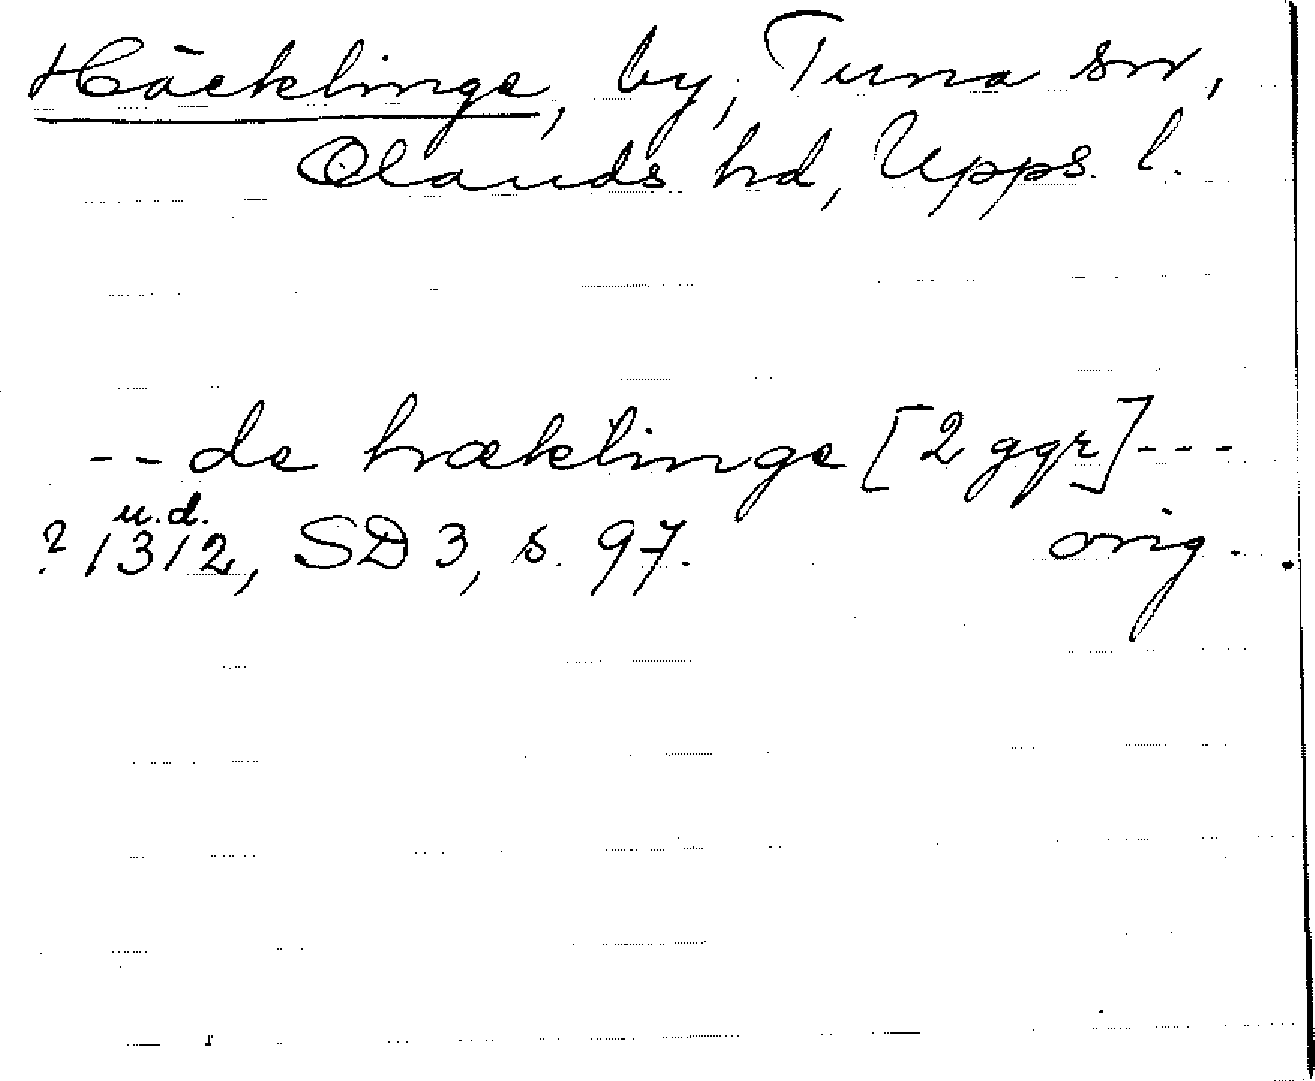 Häcklinge, by, Tuna sn,
Olands hd, Upps. l.
-- de hæklinge [2 ggr] ---
u.d.
? 1312, SD 3, s. 97. orig.